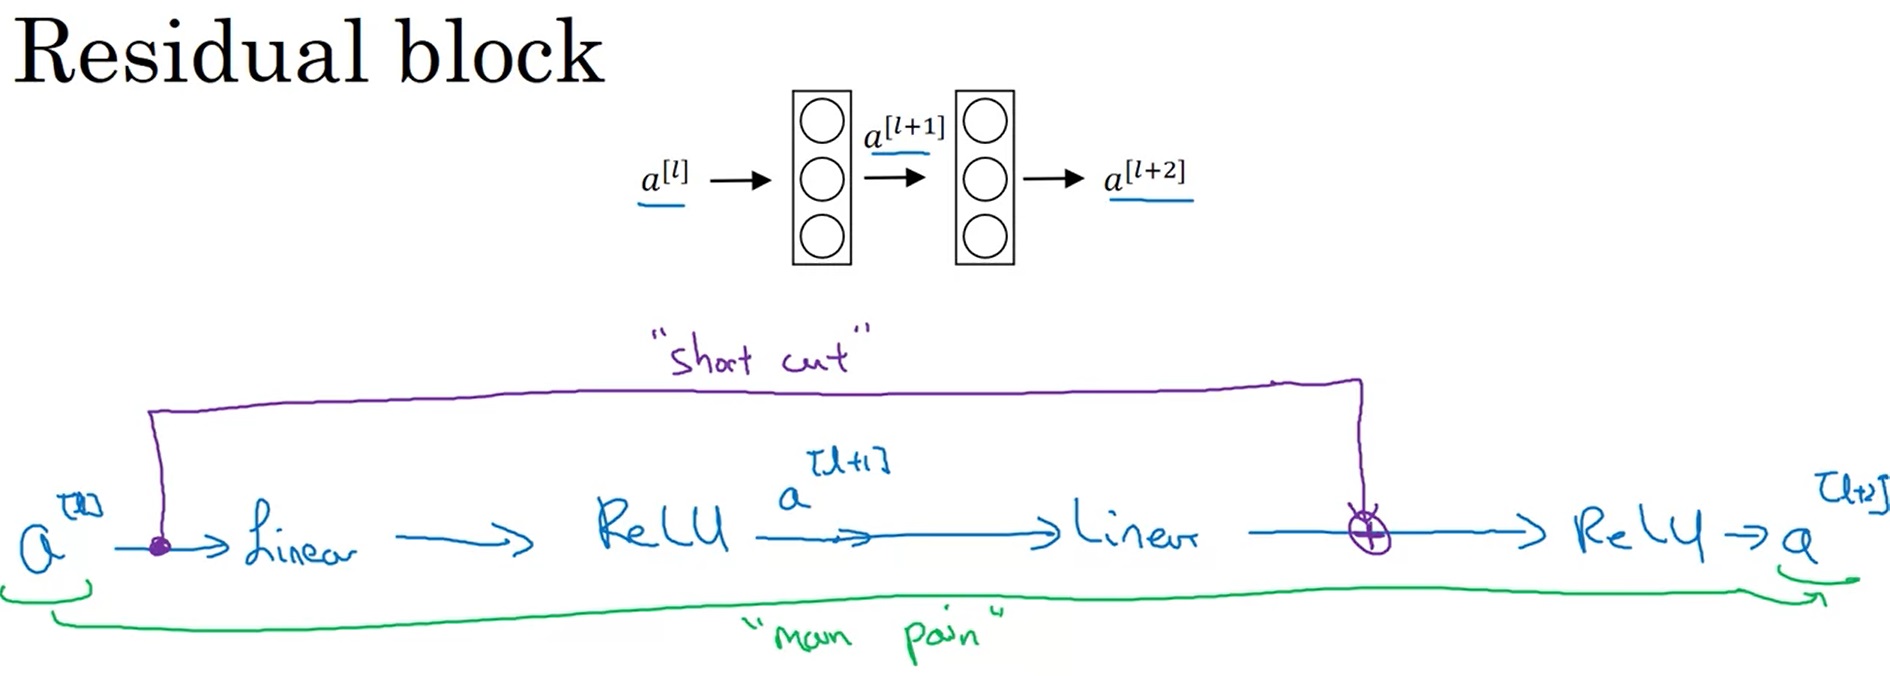 Residual block
a[l] → a[l+1] → a[l+2]
"short cut"
a[l] → Linear → ReLU a[l+1] → Linear → ReLU → a[l+2]
"main pain"